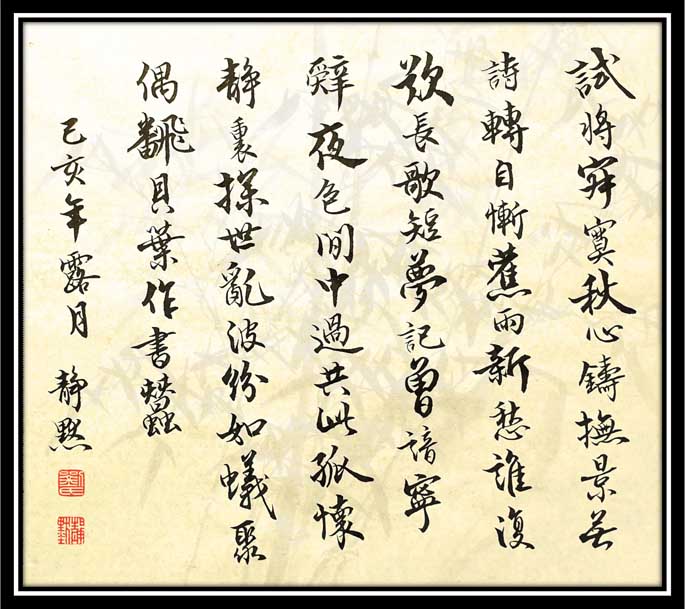 試將寂寞秋心鑄撫景無
詩轉自慚蕉雨新愁誰復
欲長歌短夢記曾諳寧
辭夜色間中過共此孤懷
靜裏探世亂波紛如蟻聚
偶翻貝葉作書蠹
己亥年露月 靜默